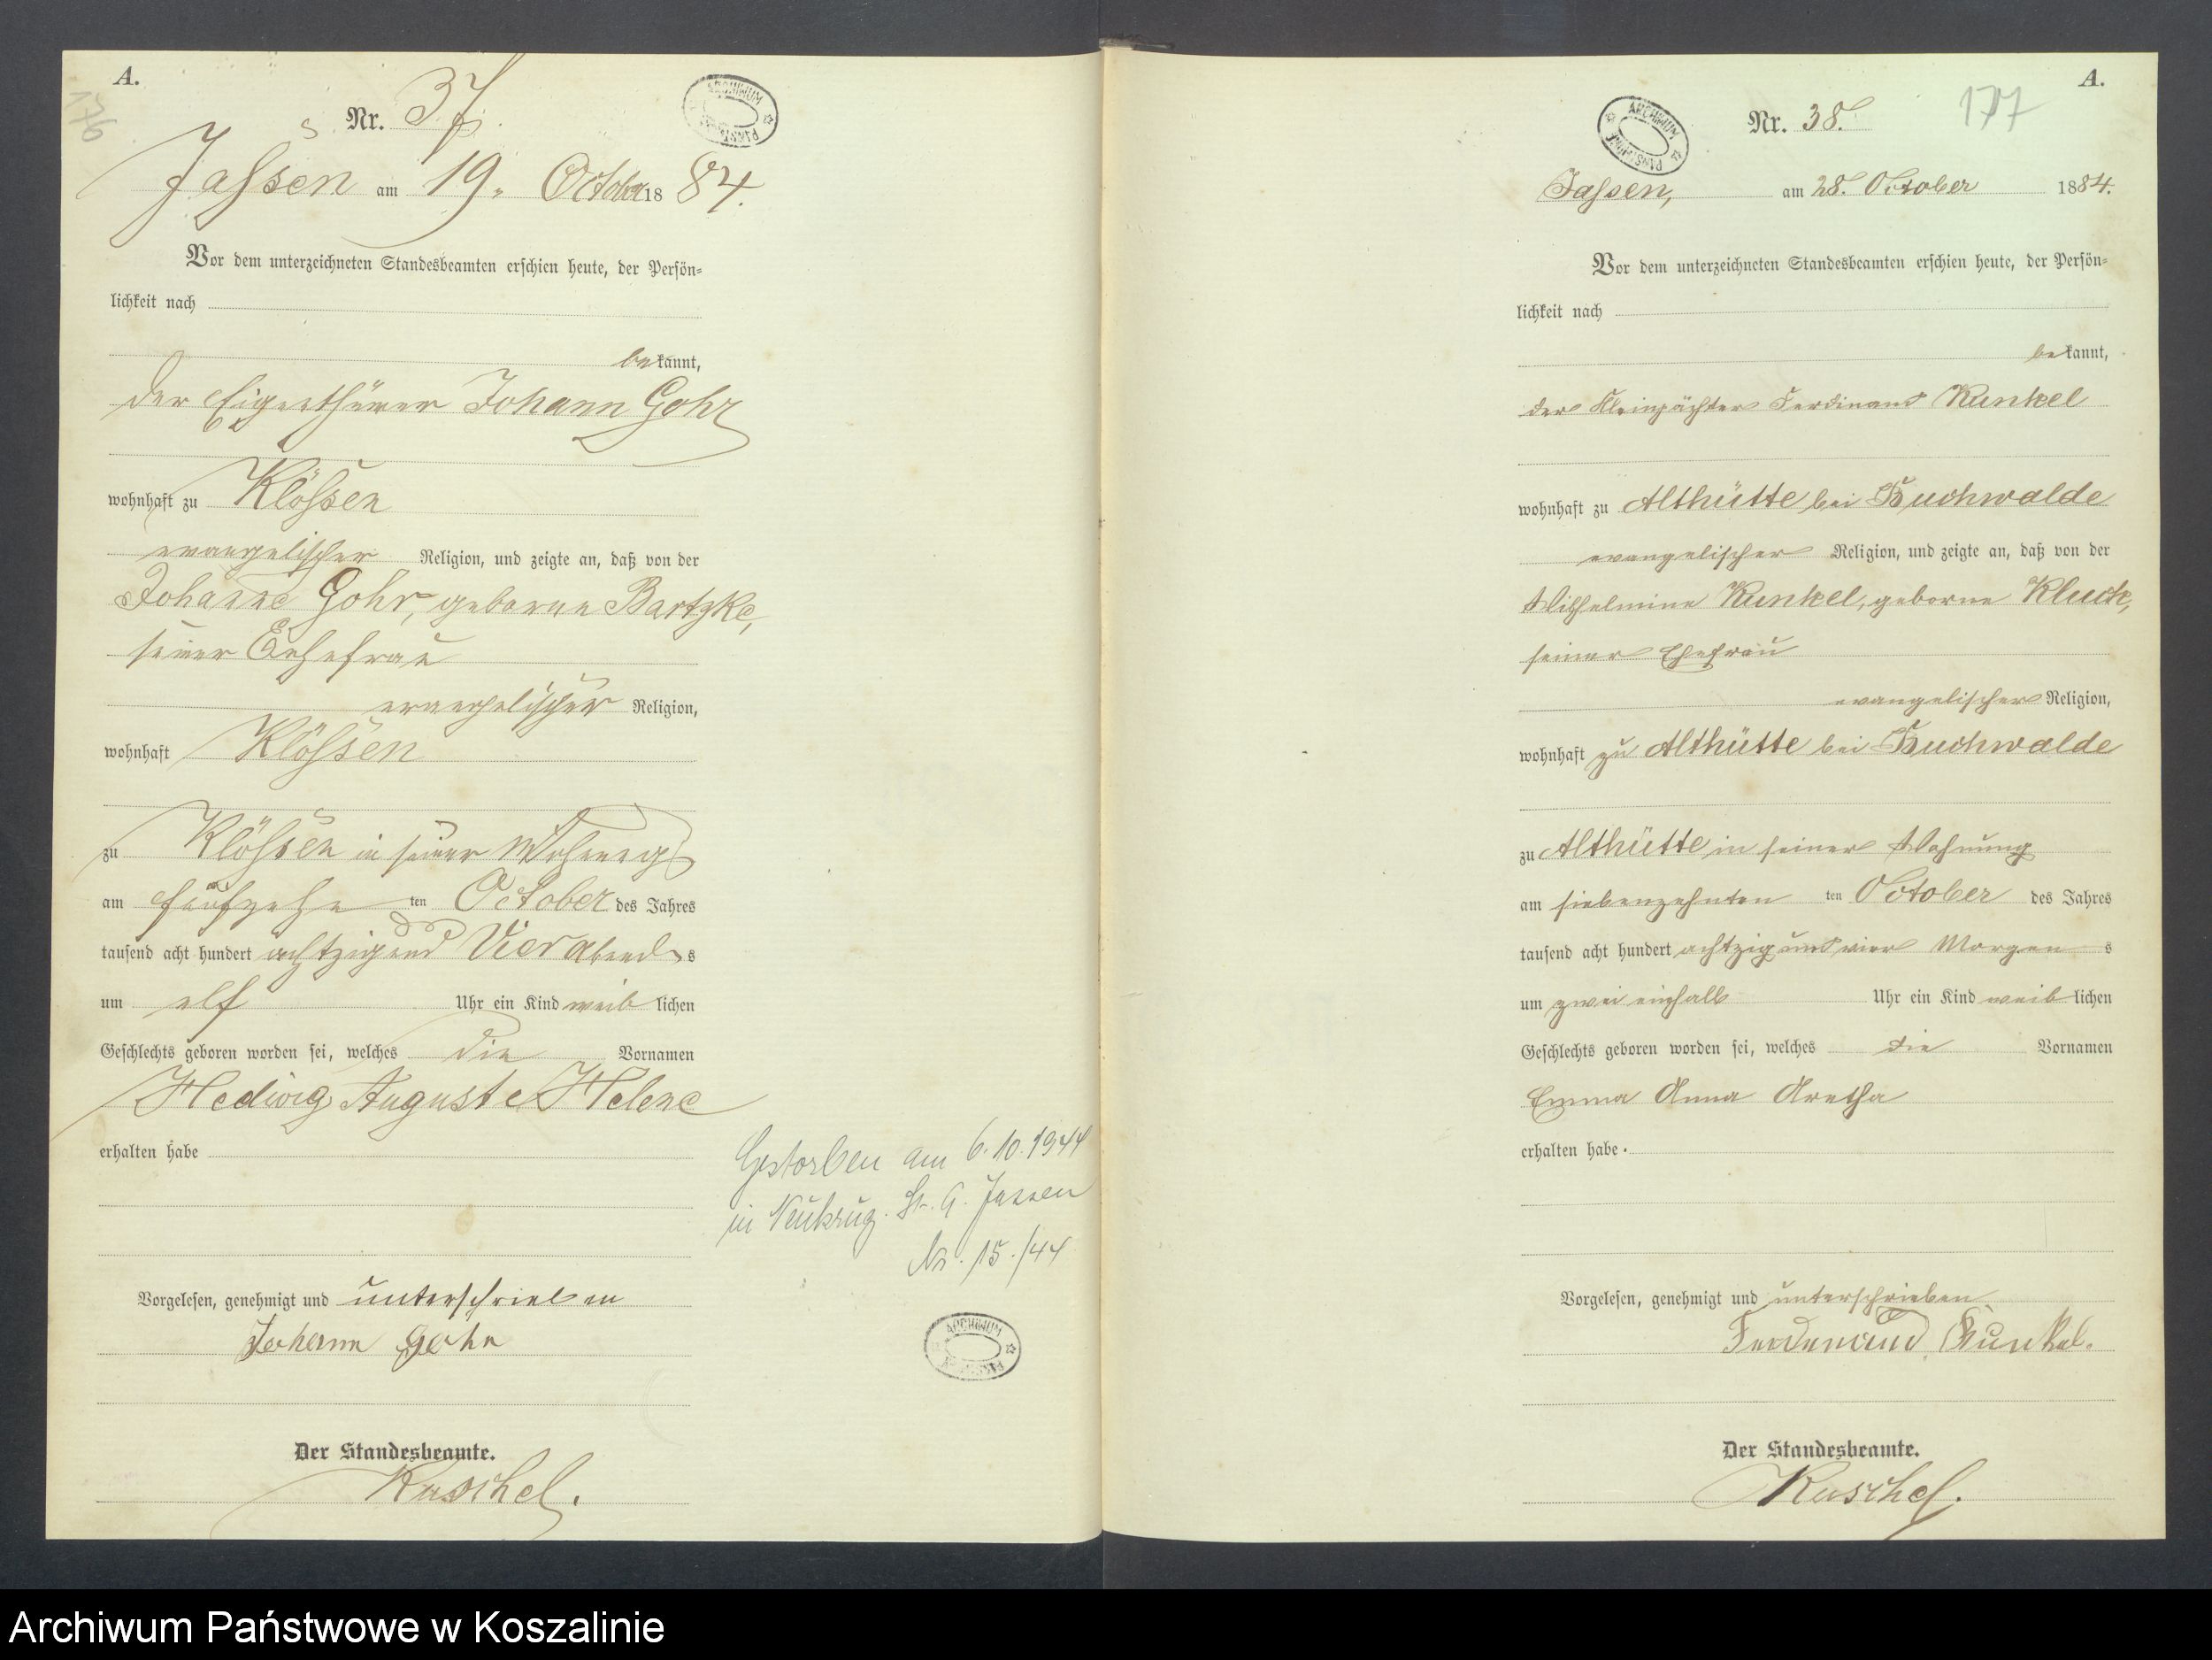 A.
Nr. 37.
Jassen am 19. October 1884.
Vor dem unterzeichneten Standesbeamten erschien heute, der Persön-
lichkeit nach
bekannt,
der Eigenthümer Johann Gohr
wohnhaft zu Klössen
evangelischer Religion, und zeigte an, daß von der
Johanne Gohr, geborene Bartzke,
seiner Ehefrau
evangelischer Religion,
wohnhaft Klössen
zu Klössen in seiner Wohnung
am fünfzehn ten October des Jahres
tausend acht hundert achtzig und Vier Abends
um elf Uhr ein Kind weiblichen
Geschlechts geboren worden sei, welches die Vornamen
Hedwig Auguste Helene
erhalten habe
Gestorben am 6.10.1944
in Neukrug. St. A. Jassen
Nr. 15./44
Vorgelesen, genehmigt und unterschrieben
Johann Gohr
Der Standesbeamte.
Kuschel.
ARCHIWUM
A.
177
Nr. 38.
Jassen, am 28. October 1884.
Vor dem unterzeichneten Standesbeamten erschien heute, der Persön-
lichkeit nach
bekannt,
der Kleinpächter Ferdinand Kunkel
wohnhaft zu Althütte bei Buchwalde
evangelischer Religion, und zeigte an, daß von der
Wilhelmine Kunkel, geborne Kluck,
seiner Ehefrau
evangelischer Religion,
wohnhaft zu Althütte bei Buchwalde
zu Althütte in seiner Wohnung
am siebenzehnten ten October des Jahres
tausend acht hundert achtzig und vier Morgens
um zwei einhalb Uhr ein Kind weiblichen
Geschlechts geboren worden sei, welches die Vornamen
Emma Anna Aretha
erhalten habe.
Vorgelesen, genehmigt und unterschrieben
Ferdenand Kunkel.
Der Standesbeamte.
Kuschel.
Archiwum Państwowe w Koszalinie